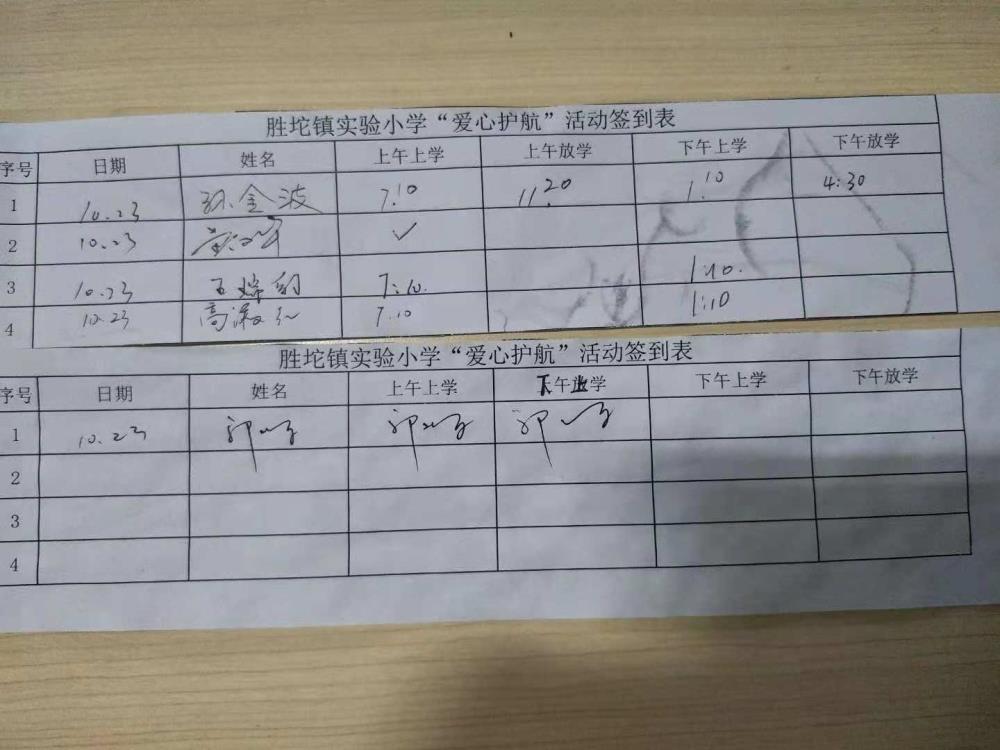 胜坨镇实验小学“爱心护航”活动签到表
序号 日期 姓名 上午上学 上午放学 下午上学 下午放学
1 10.23 孙金波 7:10 11:20 1:10 4:30
2 10.23 ✓
3 10.23 7:10. 1:10.
4 10.23 高淑仁 7:10 1:10
胜坨镇实验小学“爱心护航”活动签到表
序号 日期 姓名 上午上学 下午上学 下午上学 下午放学
1 10.23
2
3
4